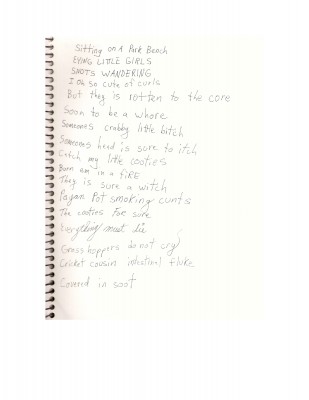 Sitting on A Park Bench
EYING LITTLE GIRLS
SNOTS WANDERING
I oh so cute of curls
But they is rotten to the core
Soon to be a whore
Someones crabby little bitch
Someones head is sure to itch
Catch my little cooties
Burn em in a fire
They is sure a witch
Pagan Pot smoking cunts
The cooties For sure
Everything must die
Grasshoppers do not cry
Cricket cousin intestinal fluke
Covered in soot